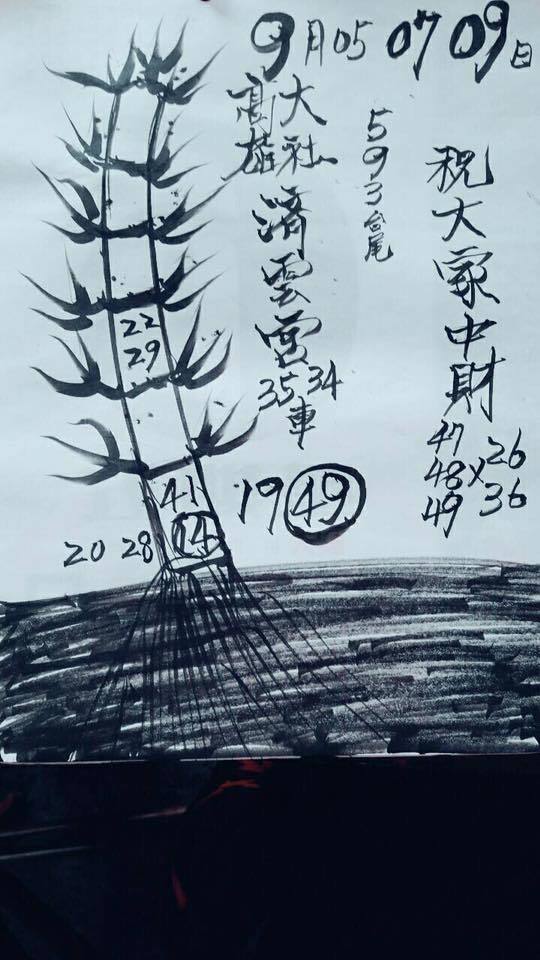 9月05 07 09日
高雄
大社
濟雲宮
34
35車
593台尾
祝大家中財
47
48 x 26
49 36
22
29
41
14
20 28
19 49